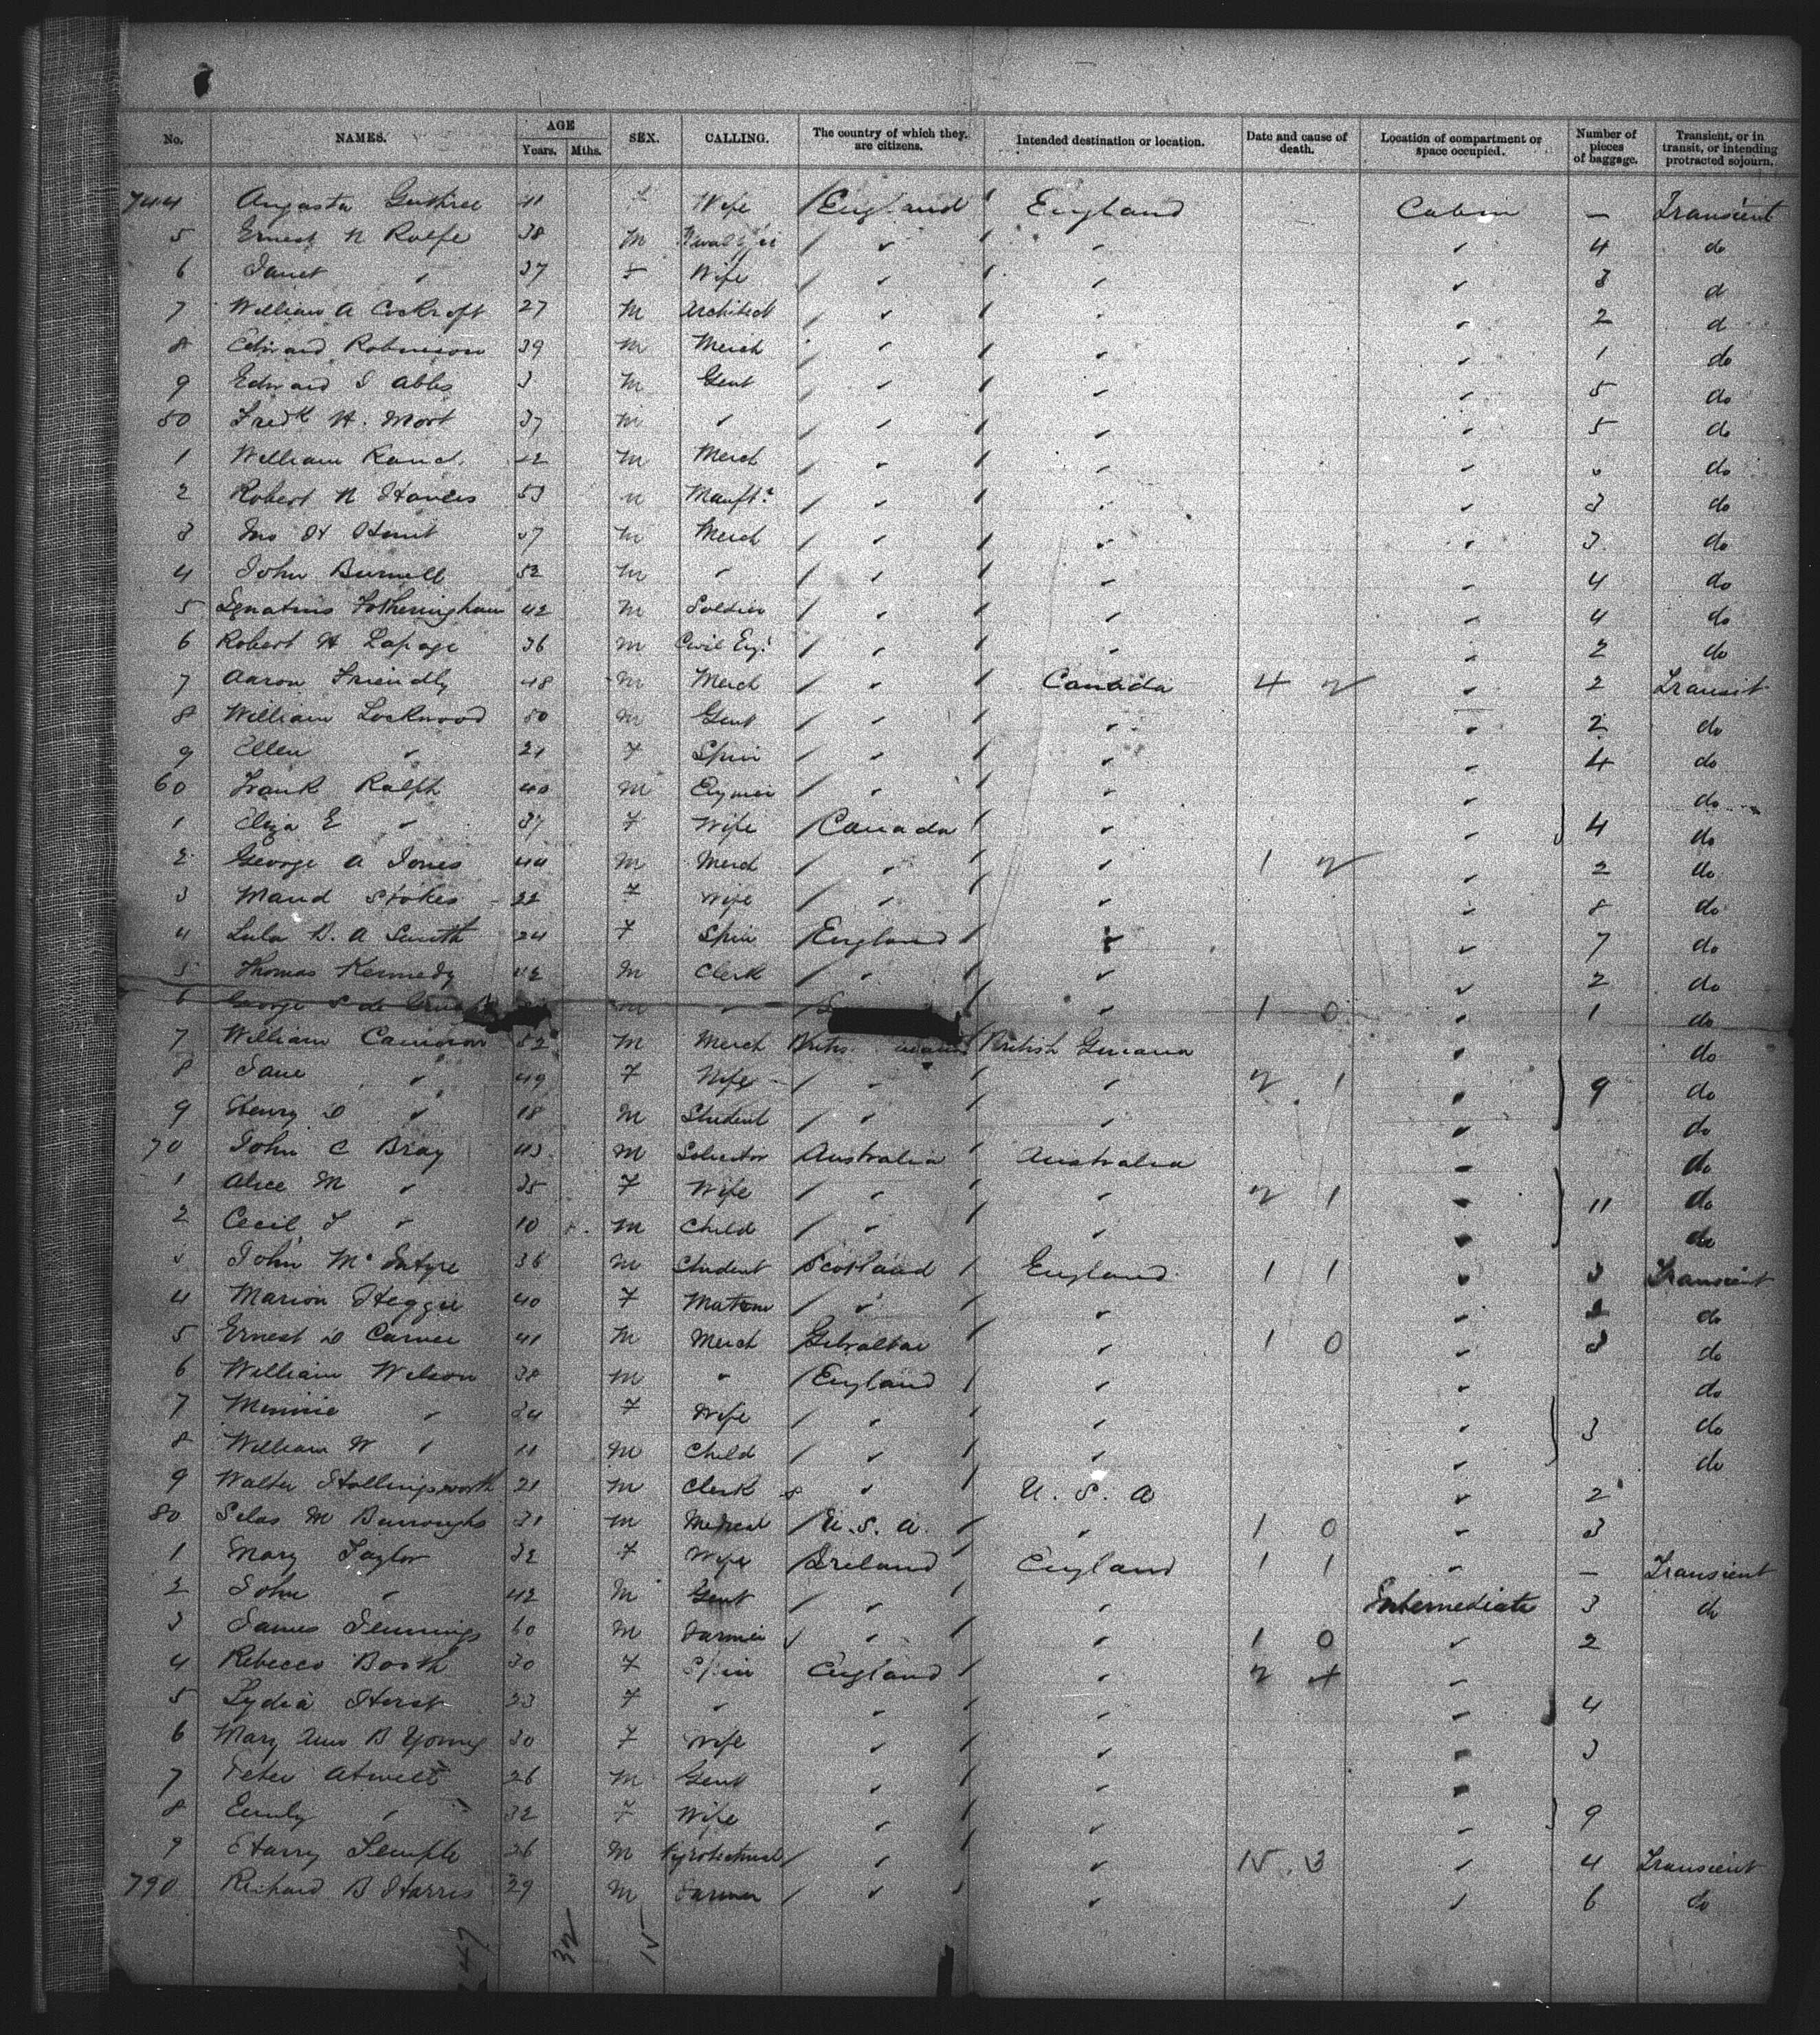 No. NAMES. AGE Years. Mths. SEX. CALLING. The country of which they are citizens. Intended destination or location. Date and cause of death. Location of compartment or space occupied. Number of pieces of baggage. Transient, or in transit, or intending protracted sojourn.
744 Augusta Guthrie F Wife England England Cabin — Transient
5 Ernest N Rolfe 38 M " " " 4 do
6 Janet " 37 F Wife " " " 3 d
7 William A Cockroft 27 M Architect " " " 2 d
8 Edward Robinson 39 M Merch " " " 1 do
9 Edward S Abbs 3 M Gent " " " 5 do
50 Fredk H. Mort 37 M " " " " 5 do
1 William Rand M Merch " " " do
2 Robert N 53 M Manftr " " " 3 do
3 Jno H Hunt 37 M Merch " " " 3 do
4 John Burnell 52 M " " " " 4 do
5 Ignatius Fotheringham 42 M Soldier " " " 4 do
6 Robert H Lapage 36 M Civil Eng. " " " 2 do
7 Aaron Friendly 48 M Merch " Canada 4 2 " 2 Transit
8 William Lockwood 50 M Gent " " " 2 do
9 Ellen " 21 F Spin " " " 4 do
60 Frank Ralph 40 M " " " do
1 Eliza E " 37 F Wife Canada " " 4 do
2 George A Jones 44 M Merch " " 1 2 " 2 do
3 Maud Stokes 22 F Wife " " " 8 do
4 Lula B. A Smith 24 F Spin England " " 7 do
5 Thomas Kennedy 42 M Clerk " " " 2 do
6 George S de M " " 1 0 " 1 do
7 William Cameron 52 M Merch British Guiana " do
8 Jane " 49 F Wife " " 2 1 " 9 do
9 Henry D " 18 M Student " " " do
70 John C Bray 43 M Solicitor Australia Australia " do
1 Alice M " 35 F Wife " " 2 1 " 11 do
2 Cecil J " 10 M Child " " " do
3 John McIntyre 36 M Student Scotland England 1 1 " 3 Transient
4 Marion Heggie 40 F Matron " " " do
5 Ernest D Carver 41 M Merch Gibraltar " 1 0 " 3 do
6 William Wilson 38 M " England " " do
7 Minnie " 34 F Wife " " " 3 do
8 William W " 11 M Child " " " do
9 Walter Hollingsworth 21 M Clerk " U. S. A " 2
80 Silas M Burroughs 31 M Medical U. S. A. " 1 0 " 3
1 Mary Taylor 32 F Wife Ireland England 1 1 " — Transient
2 John " 42 M Gent " " Intermediate 3 do
3 James Jennings 60 M Farmer " " 1 0 " 2
4 Rebecca Booth 30 F Spin England " 2 4 "
5 Lydia Herst 23 F " " " " 4
6 Mary Ann B Young 30 F Wife " " " 3
7 Peter Atwell 26 M Gent " " "
8 Emily " 32 F Wife " " " 9
9 Harry Temple 26 M " " 15 . 3 " 4 Transient
790 Richard B Harris 39 M Farmer " " " 6 do
32 15